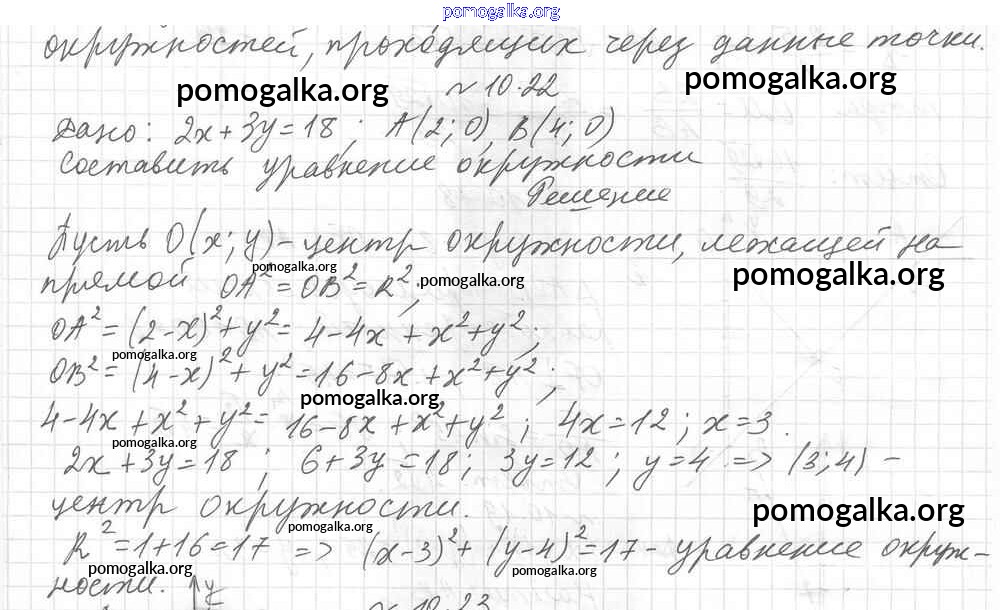 pomogalka.org
окружностей, проходящих через данные точки.
pomogalka.org
№ 10.22
pomogalka.org
Дано: 2x+3y=18; A(2;0), B(4;0)
Составить уравнение окружности
Решение
Пусть O(x;y)-центр окружности, лежащей на
pomogalka.org
pomogalka.org
прямой OA²=OB²=R²;
pomogalka.org
OA²=(2-x)²+y²=4-4x+x²+y²;
pomogalka.org
OB²=(4-x)²+y²=16-8x+x²+y²;
pomogalka.org
4-4x+x²+y²=16-8x+x²+y²; 4x=12; x=3.
pomogalka.org
2x+3y=18; 6+3y=18; 3y=12; y=4 => (3;4) -
центр окружности.
pomogalka.org
pomogalka.org
R²=1+16=17 => (x-3)²+(y-4)²=17-уравнение окруж-
pomogalka.org
pomogalka.org
ности. y
№ 10.23